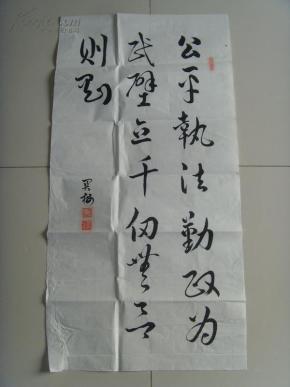 公平執法勤政为
民壁立千仞無欲
则刚